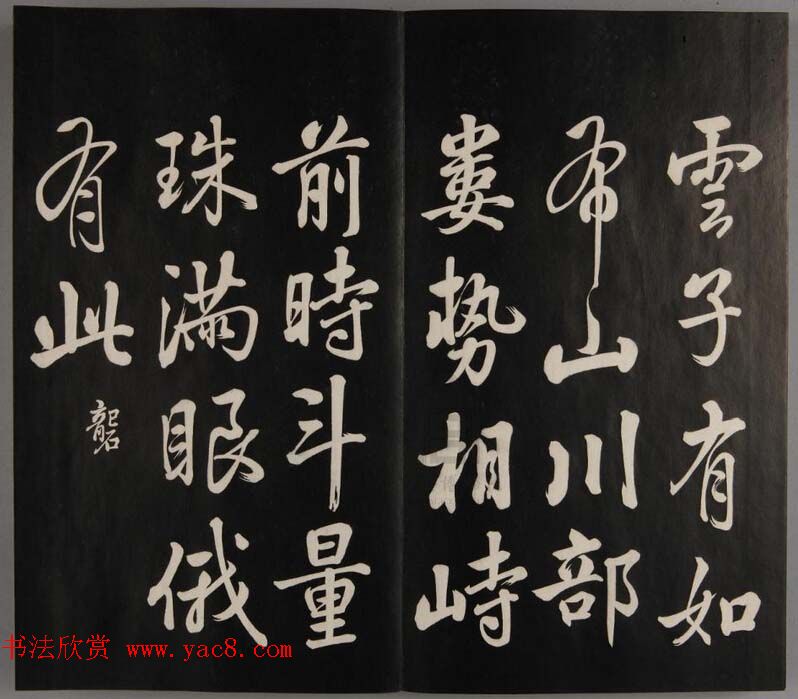 雲子有如
布山川部
婁勢相峙
前時斗量
珠滿眼俄
有此
书法欣赏 www.yac8.com